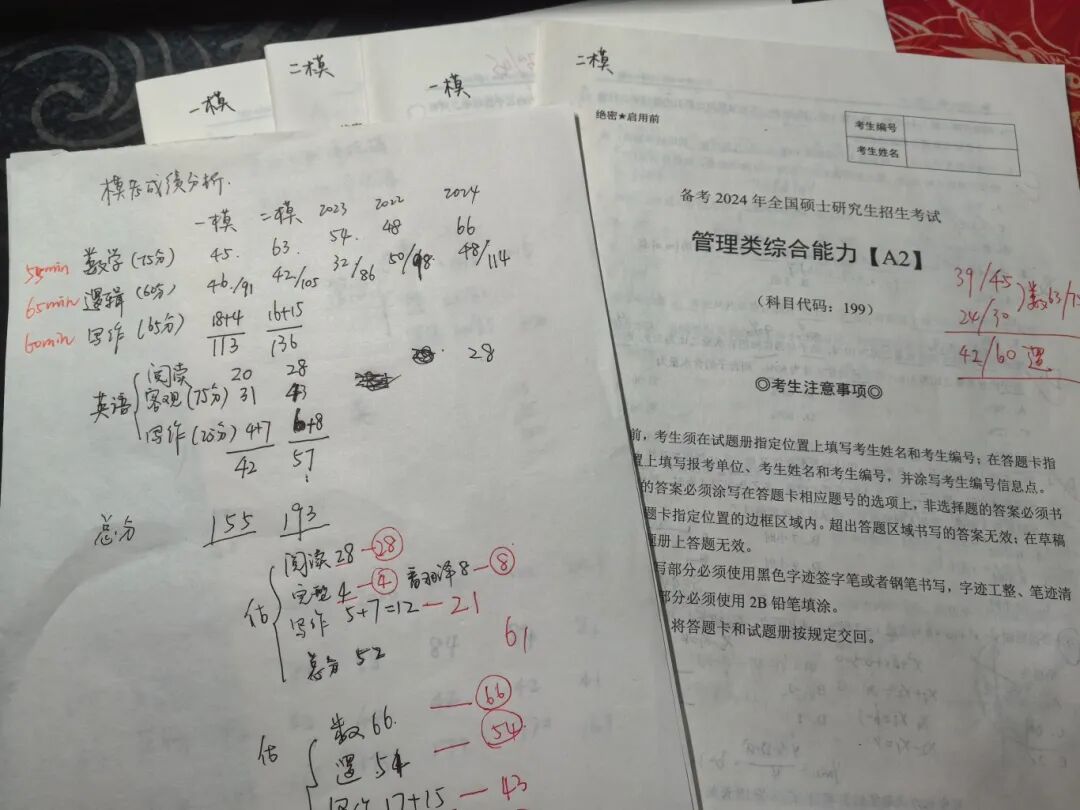 二模
一模
二模
一模
绝密★启用前
考生编号
考生姓名
备考 2024 年全国硕士研究生招生考试
管理类综合能力【A2】
(科目代码:199)
39/45
24/30
数63/75
42/60 逻
◎考生注意事项◎
前,考生须在试题册指定位置上填写考生姓名和考生编号;在答题卡指
置上填写报考单位、考生姓名和考生编号,并涂写考生编号信息点。
的答案必须涂写在答题卡相应题号的选项上,非选择题的答案必须书
题卡指定位置的边框区域内。超出答题区域书写的答案无效;在草稿
题册上答题无效。
写部分必须使用黑色字迹签字笔或者钢笔书写,字迹工整、笔迹清
部分必须使用 2B 铅笔填涂。
将答题卡和试题册按规定交回。
模考成绩分析.
一模 二模 2023 2022 2024
55min 数学(75分) 45. 63. 54. 48 66
65min 逻辑(60分) 46/91 42/105 32/86 50/98 48/114
60min 写作(65分) 18+4 16+15
113 136
英语
阅读 20 28 28
客观(75分) 31 43
写作(25分) 4+7 6+8
42 57
总分 155 193
估
阅读 28 — 28
完型 4 — 4 翻译 8 — 8
写作 5+7=12 — 21
总分 52 61
估
数 66. — 66
逻 54 — 54
写作 17+15 — 43